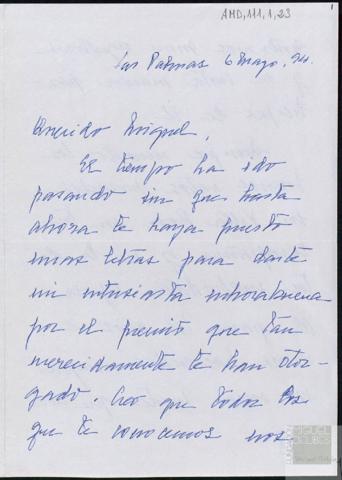 AMD, 111, 1, 23
Las Palmas 6 Mayo, 94.
Querido Miguel,
El tiempo ha ido
pasando sin que hasta
ahora te haya puesto
unas letras para darte
mi entusiasta enhorabuena
por el premio que tan
merecidamente te han otor-
gado. Creo que todos los
que te conocemos nos
FUNDACIÓN
MIGUEL
DELIBES